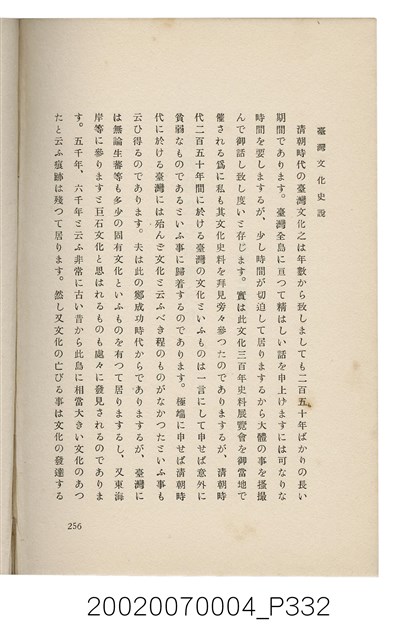 臺灣文化史說
淸朝時代の臺灣文化之は年數から致しましても二百五十年ばかりの長い
期間であります。臺灣全島に亘つて精はしい話を申上げますには可なりな
時間を要しまするが、少し時間が切迫して居りまするから大體の事を搔撮
んで御話し致し度いと存じます。實は此文化三百年史料展覽會を御當地で
催される爲に私も其文化史料を拜見旁々參つたのでありまするが、淸朝時
代二百五十年間に於ける臺灣の文化といふものは一言にして申せば意外に
貧弱なものであるといふ事に歸着するのであります。極端に申せば淸朝時
代に於ける臺灣には殆んど文化と云ふべき程のものがなかつたといふ事も
云ひ得るのであります。夫は此の鄭成功時代からでありまするが、臺灣に
は無論生蕃等も多少の固有文化といふものを有つて居りまするし、又東海
岸等に參りますと巨石文化と思はれるものも處々に發見されるのでありま
す。五千年、六千年と云ふ非常に古い昔から此島に相當大きい文化のあつ
たと云ふ痕跡は殘つて居ります。然し又文化の亡びる事は文化の發達する
256
20020070004_P332